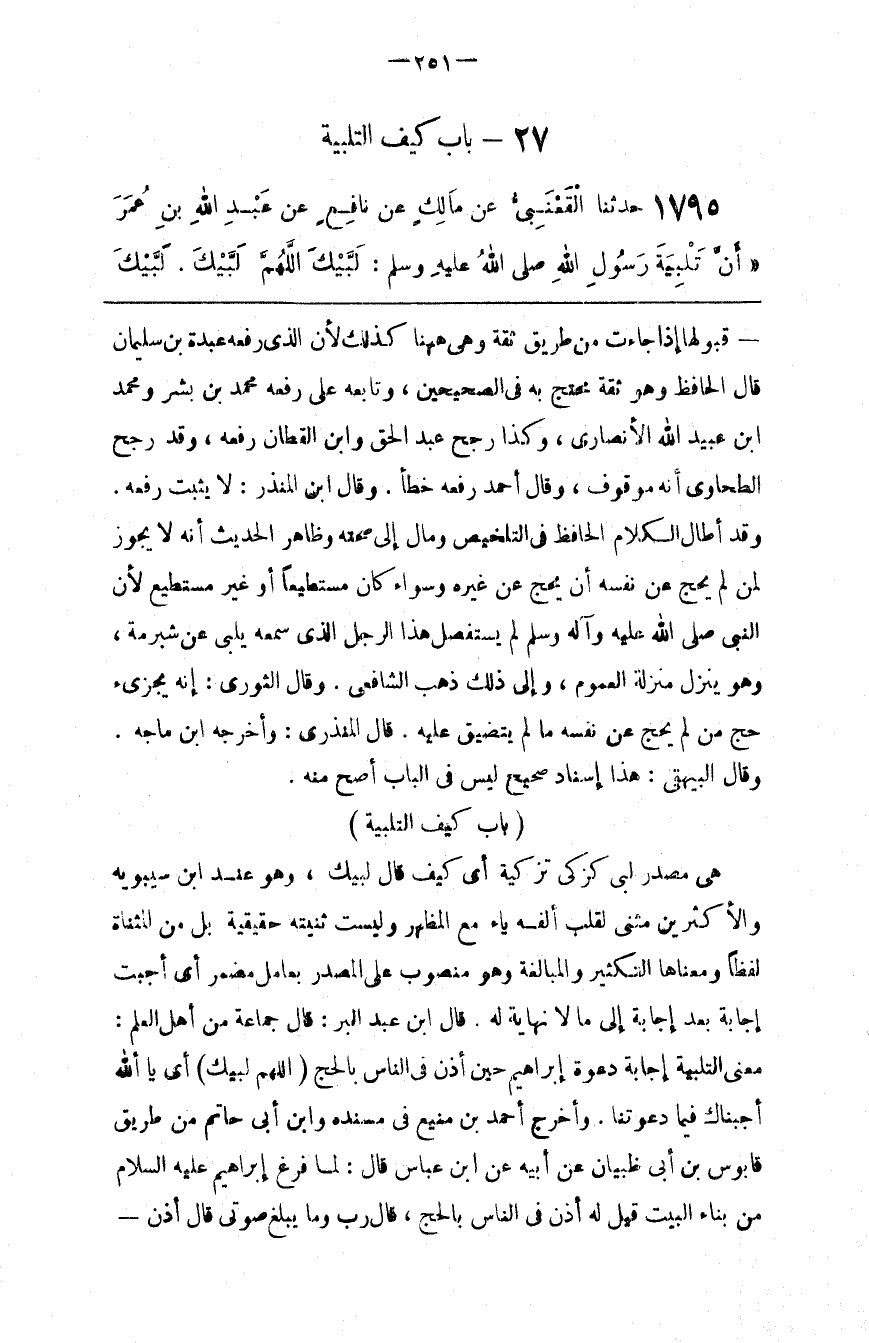 —٢٥١—
٢٧ — باب كيف التلبية
١٧٩٥ حدثنا الْقَعْنَبِىُّ عن مَالِكٍ عن نافِعٍ عن عَبْدِ اللهِ بنِ عُمَرَ
« أَنَّ تَلْبِيَةَ رَسُولِ اللهِ صلى اللهُ عليهِ وسلم : لَبَّيْكَ اللَّهُمَّ لَبَّيْكَ . لَبَّيْكَ
— قبولها إذا جاءت من طريق ثقة وهى ههنا كذلك لأن الذى رفعه عبدة بن سليمان
قال الحافظ وهو ثقة محتج به فى الصحيحين ، وتابعه على رفعه محمد بن بشر ومحمد
ابن عبيد الله الأنصارى ، وكذا رجح عبد الحق وابن القطان رفعه ، وقد رجح
الطحاوى أنه موقوف ، وقال أحمد رفعه خطأ . وقال ابن المنذر : لا يثبت رفعه .
وقد أطال الكلام الحافظ فى التلخيص ومال إلى صحته وظاهر الحديث أنه لا يجوز
لمن لم يحج عن نفسه أن يحج عن غيره وسواء كان مستطيعاً أو غير مستطيع لأن
النبى صلى الله عليه وآله وسلم لم يستفصل هذا الرجل الذى سمعه يلبى عن شبرمة ،
وهو ينزل منزلة العموم ، وإلى ذلك ذهب الشافعى . وقال الثورى : إنه يجزىء
حج من لم يحج عن نفسه ما لم يتضيق عليه . قال المنذرى : وأخرجه ابن ماجه .
وقال البيهقى : هذا إسناد صحيح ليس فى الباب أصح منه .
( باب كيف التلبية )
هى مصدر لبى كزكى تزكية أى كيف قال لبيك ، وهو عند ابن سيبويه
والأكثرين مثنى لقلب ألفه ياء مع المظهر وليست ثنيته حقيقية بل من المثناة
لفظاً ومعناها التكثير والمبالغة وهو منصوب على المصدر بعامل مضمر أى أجبت
إجابة بعد إجابة إلى ما لا نهاية له . قال ابن عبد البر : قال جماعة من أهل العلم :
معنى التلبية إجابة دعوة إبراهيم حين أذن فى الناس بالحج ( اللهم لبيك ) أى يا ألله
أجبناك فيما دعوتنا . وأخرج أحمد بن منيع فى مسنده وابن أبى حاتم من طريق
قابوس بن أبى ظبيان عن أبيه عن ابن عباس قال : لما فرغ إبراهيم عليه السلام
من بناء البيت قيل له أذن فى الناس بالحج ، قال رب وما يبلغ صوتى قال أذن —